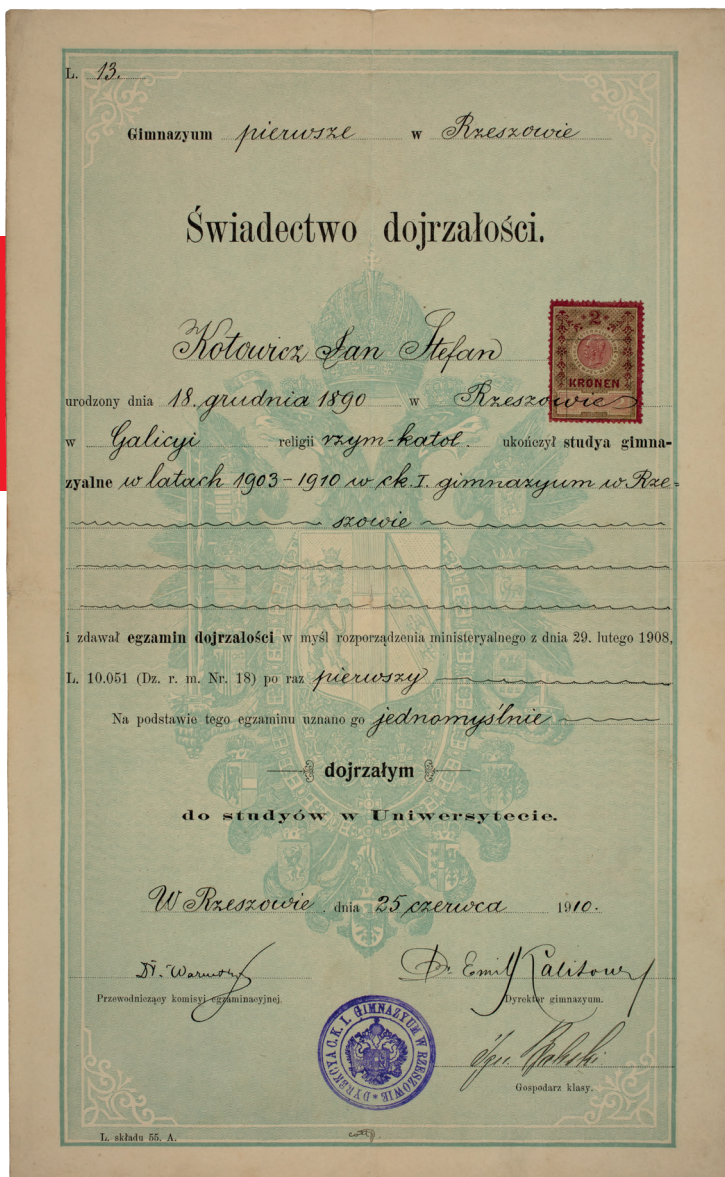 L. 13.
Gimnazyum pierwsze w Rzeszowie
Świadectwo dojrzałości.
2
KRONEN
Kotowicz Jan Stefan
urodzony dnia 18. grudnia 1890 w Rzeszowie
w Galicyi religii rzym-katol. ukończył studya gimna-
zyalne w latach 1903-1910 w ck. I. gimnazyum w Rze=
szowie
i zdawał egzamin dojrzałości w myśl rozporządzenia ministeryalnego z dnia 29. lutego 1908,
L. 10.051 (Dz. r. m. Nr. 18) po raz pierwszy
Na podstawie tego egzaminu uznano go jednomyślnie
dojrzałym
do studyów w Uniwersytecie.
W Rzeszowie. dnia 25 czerwca 1910.
Dr. Emil
Przewodniczący komisyi egzaminacyjnej.
Dyrektor gimnazyum.
DYREKCYA C. K. I. GIMNAZYUM W RZESZOWIE
Gospodarz klasy.
L. składu 55. A.